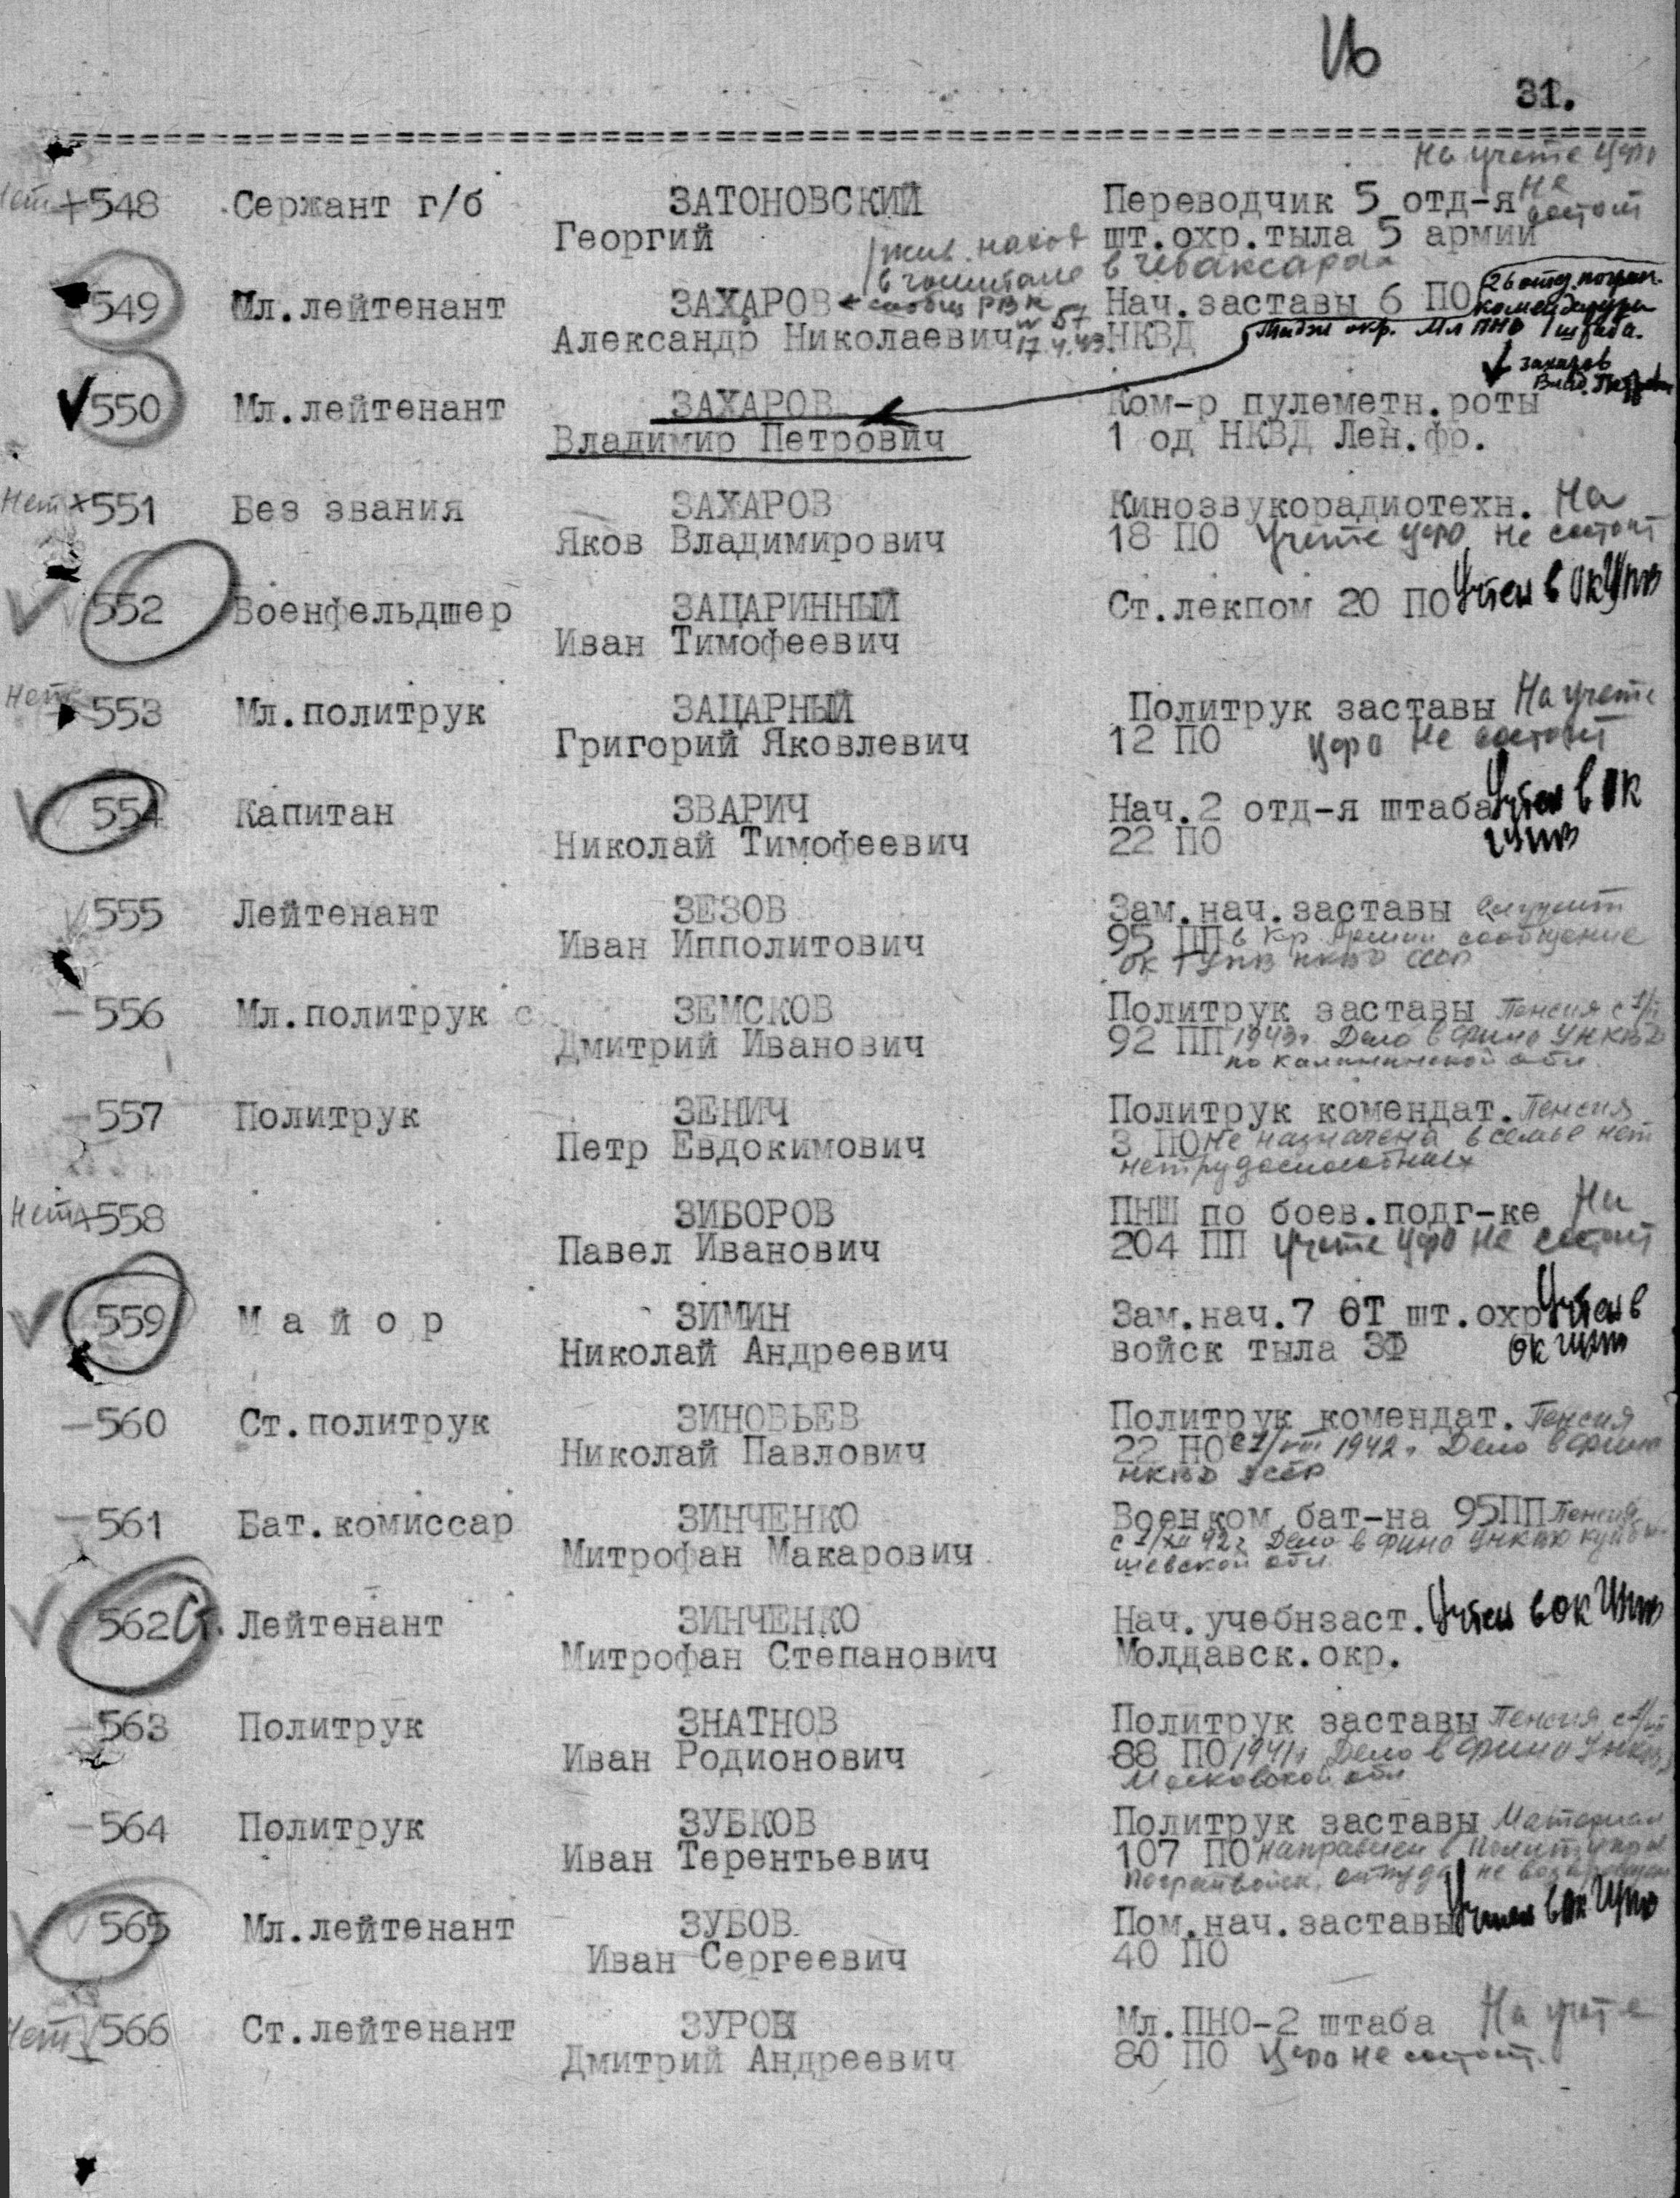 31.
На учете Цфо
Нет +548 Сержант г/б ЗАТОНОВСКИЙ Переводчик 5 отд-я не состоит
Георгий шт.охр.тыла 5 армии
жив. наход в Чебаксарах
в госпитале
549 Мл.лейтенант ЗАХАРОВ сообщ РВК Нач.заставы 6 ПО 26 отд. погран. комендатуры
Александр Николаевич 17.4.43. НКВД окр. Мл ПНО 1 штаба.
Захаров
Влад. Петрович
550 Мл.лейтенант ЗАХАРОВ Ком-р пулеметн.роты
Владимир Петрович 1 од НКВД Лен.фр.
Нет +551 Без звания ЗАХАРОВ Кинозвукорадиотехн. На
Яков Владимирович 18 ПО Учете Цфо не состоит
552 Военфельдшер ЗАЦАРИННЫЙ Ст.лекпом 20 ПО Учтен в ОК
Иван Тимофеевич
Нет 553 Мл.политрук ЗАЦАРНЫЙ Политрук заставы На учете
Григорий Яковлевич 12 ПО Цфо не состоит
554 Капитан ЗВАРИЧ Нач.2 отд-я штаба Учтен в ОК
Николай Тимофеевич 22 ПО
555 Лейтенант ЗЕЗОВ Зам.нач.заставы служит
Иван Ипполитович 95 ПП в Кр Армии сообщение
ОК ГУПВ НКВД СССР
-556 Мл.политрук с ЗЕМСКОВ Политрук заставы Пенсия с
Дмитрий Иванович 92 ПП 1943г. Дело в Фино УНКВД
по Калининской обл.
-557 Политрук ЗЕНИЧ Политрук комендат. Пенсия
Петр Евдокимович 3 ПО не назначена в семье нет
нетрудоспособных
Нет +558 ЗИБОРОВ ПНШ по боев.подг-ке На
Павел Иванович 204 ПП учете Цфо не состоит
559 М а й о р ЗИМИН Зам.нач.7 ОТ шт.охр Учтен в
Николай Андреевич войск тыла ЗФ ОК
-560 Ст.политрук ЗИНОВЬЕВ Политрук комендат. Пенсия
Николай Павлович 22 ПО с 1/VIII 1942г. Дело в Фино
НКВД
-561 Бат.комиссар ЗИНЧЕНКО Военком бат-на 95ПП Пенсия
Митрофан Макарович с 1/XII 42г. Дело в Фино УНКВД Куйбы-
шевской обл.
562 Ст. Лейтенант ЗИНЧЕНКО Нач.учебнзаст. Учтен в ОК
Митрофан Степанович Молдавск.окр.
-563 Политрук ЗНАТНОВ Политрук заставы Пенсия с
Иван Родионович 88 ПО 1941г. Дело в Фино УНКВД
Московской обл
-564 Политрук ЗУБКОВ Политрук заставы Материал
Иван Терентьевич 107 ПО направлен в
Погранвойск, откуда не
565 Мл.лейтенант ЗУБОВ Пом.нач.заставы Учтен в ОК
Иван Сергеевич 40 ПО
Нет 566 Ст.лейтенант ЗУРОВ Мл.ПНО-2 штаба На учете
Дмитрий Андреевич 80 ПО Цфо не состоит.